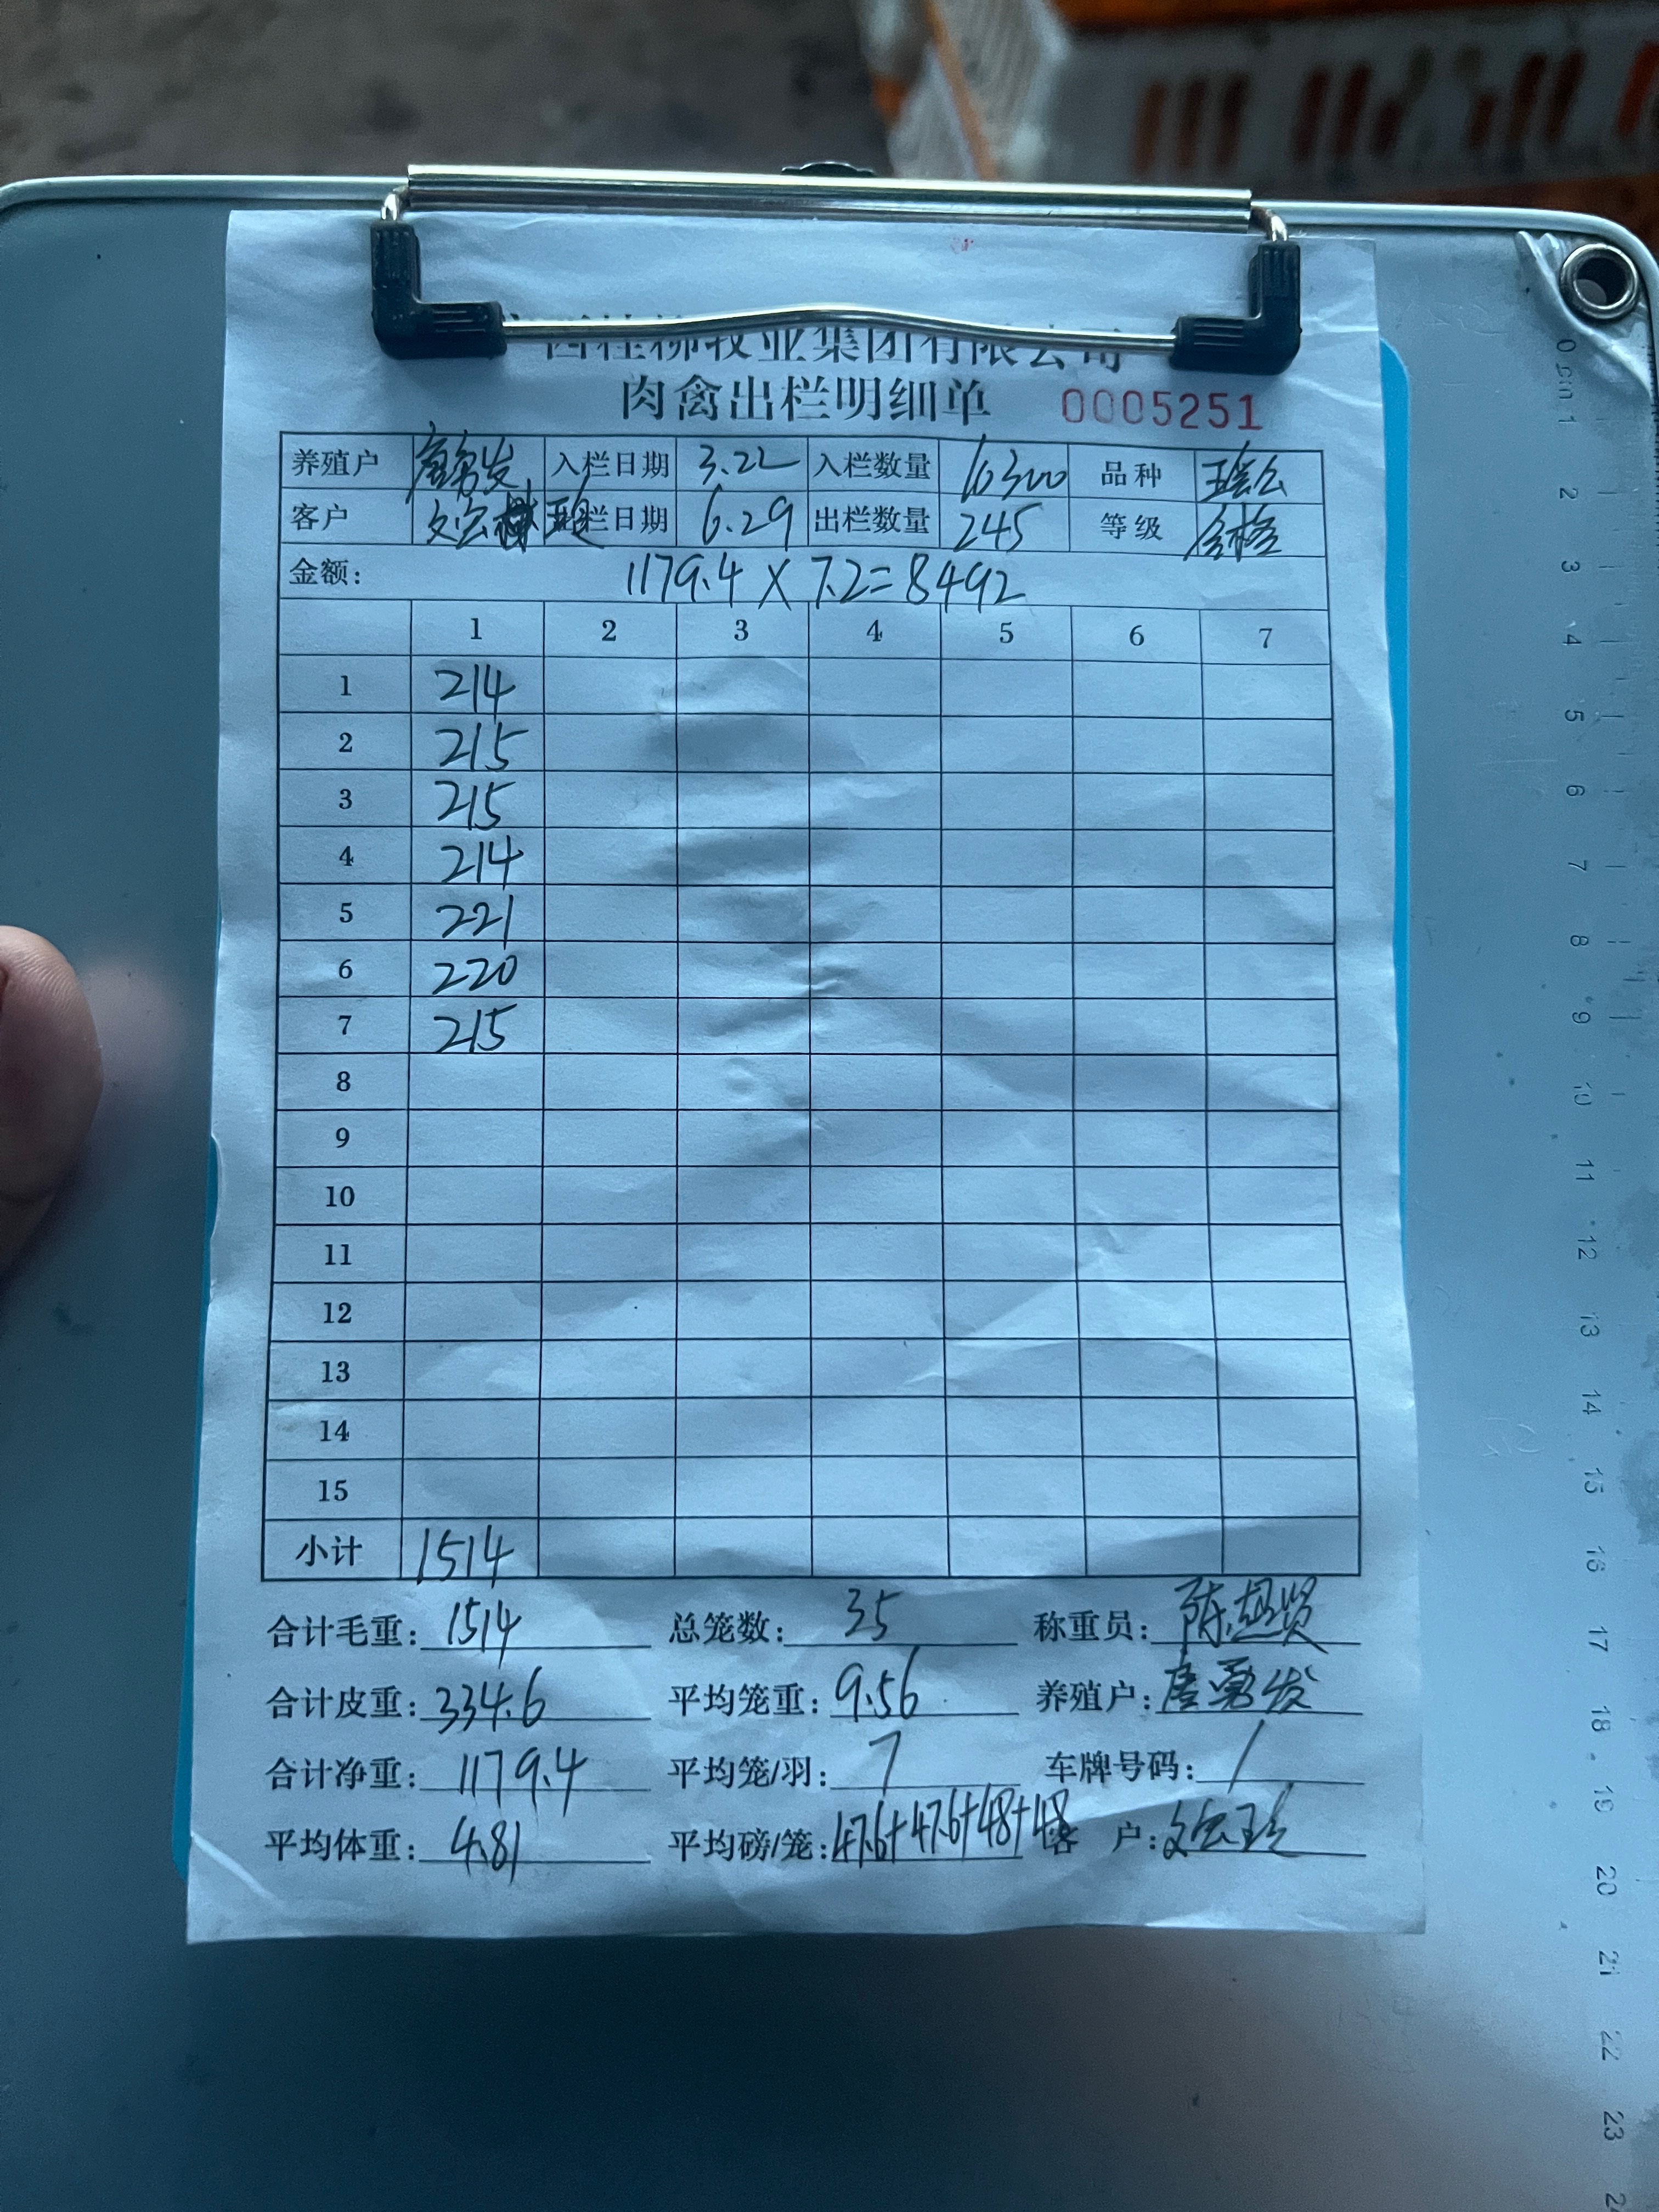 西桂柳牧业集团有限公司
肉禽出栏明细单 0005251
养殖户 唐勇发 入栏日期 3.22 入栏数量 16300 品种
客户 栏日期 6.29 出栏数量 245 等级 合格
金额: 1179.4 × 7.2=8492
1 2 3 4 5 6 7
1 214
2 215
3 215
4 214
5 221
6 220
7 215
8
9
10
11
12
13
14
15
小计 1514
合计毛重: 1514 总笼数: 35 称重员:
合计皮重: 334.6 平均笼重: 9.56 养殖户: 唐勇发
合计净重: 1179.4 平均笼/羽: 7 车牌号码: /
平均体重: 4.81 平均磅/笼: 47.6+47.6+48+48 户:
0 cm 1 2 3 4 5 6 7 8 9 10 11 12 13 14 15 16 17 18 19 20 21 22 23